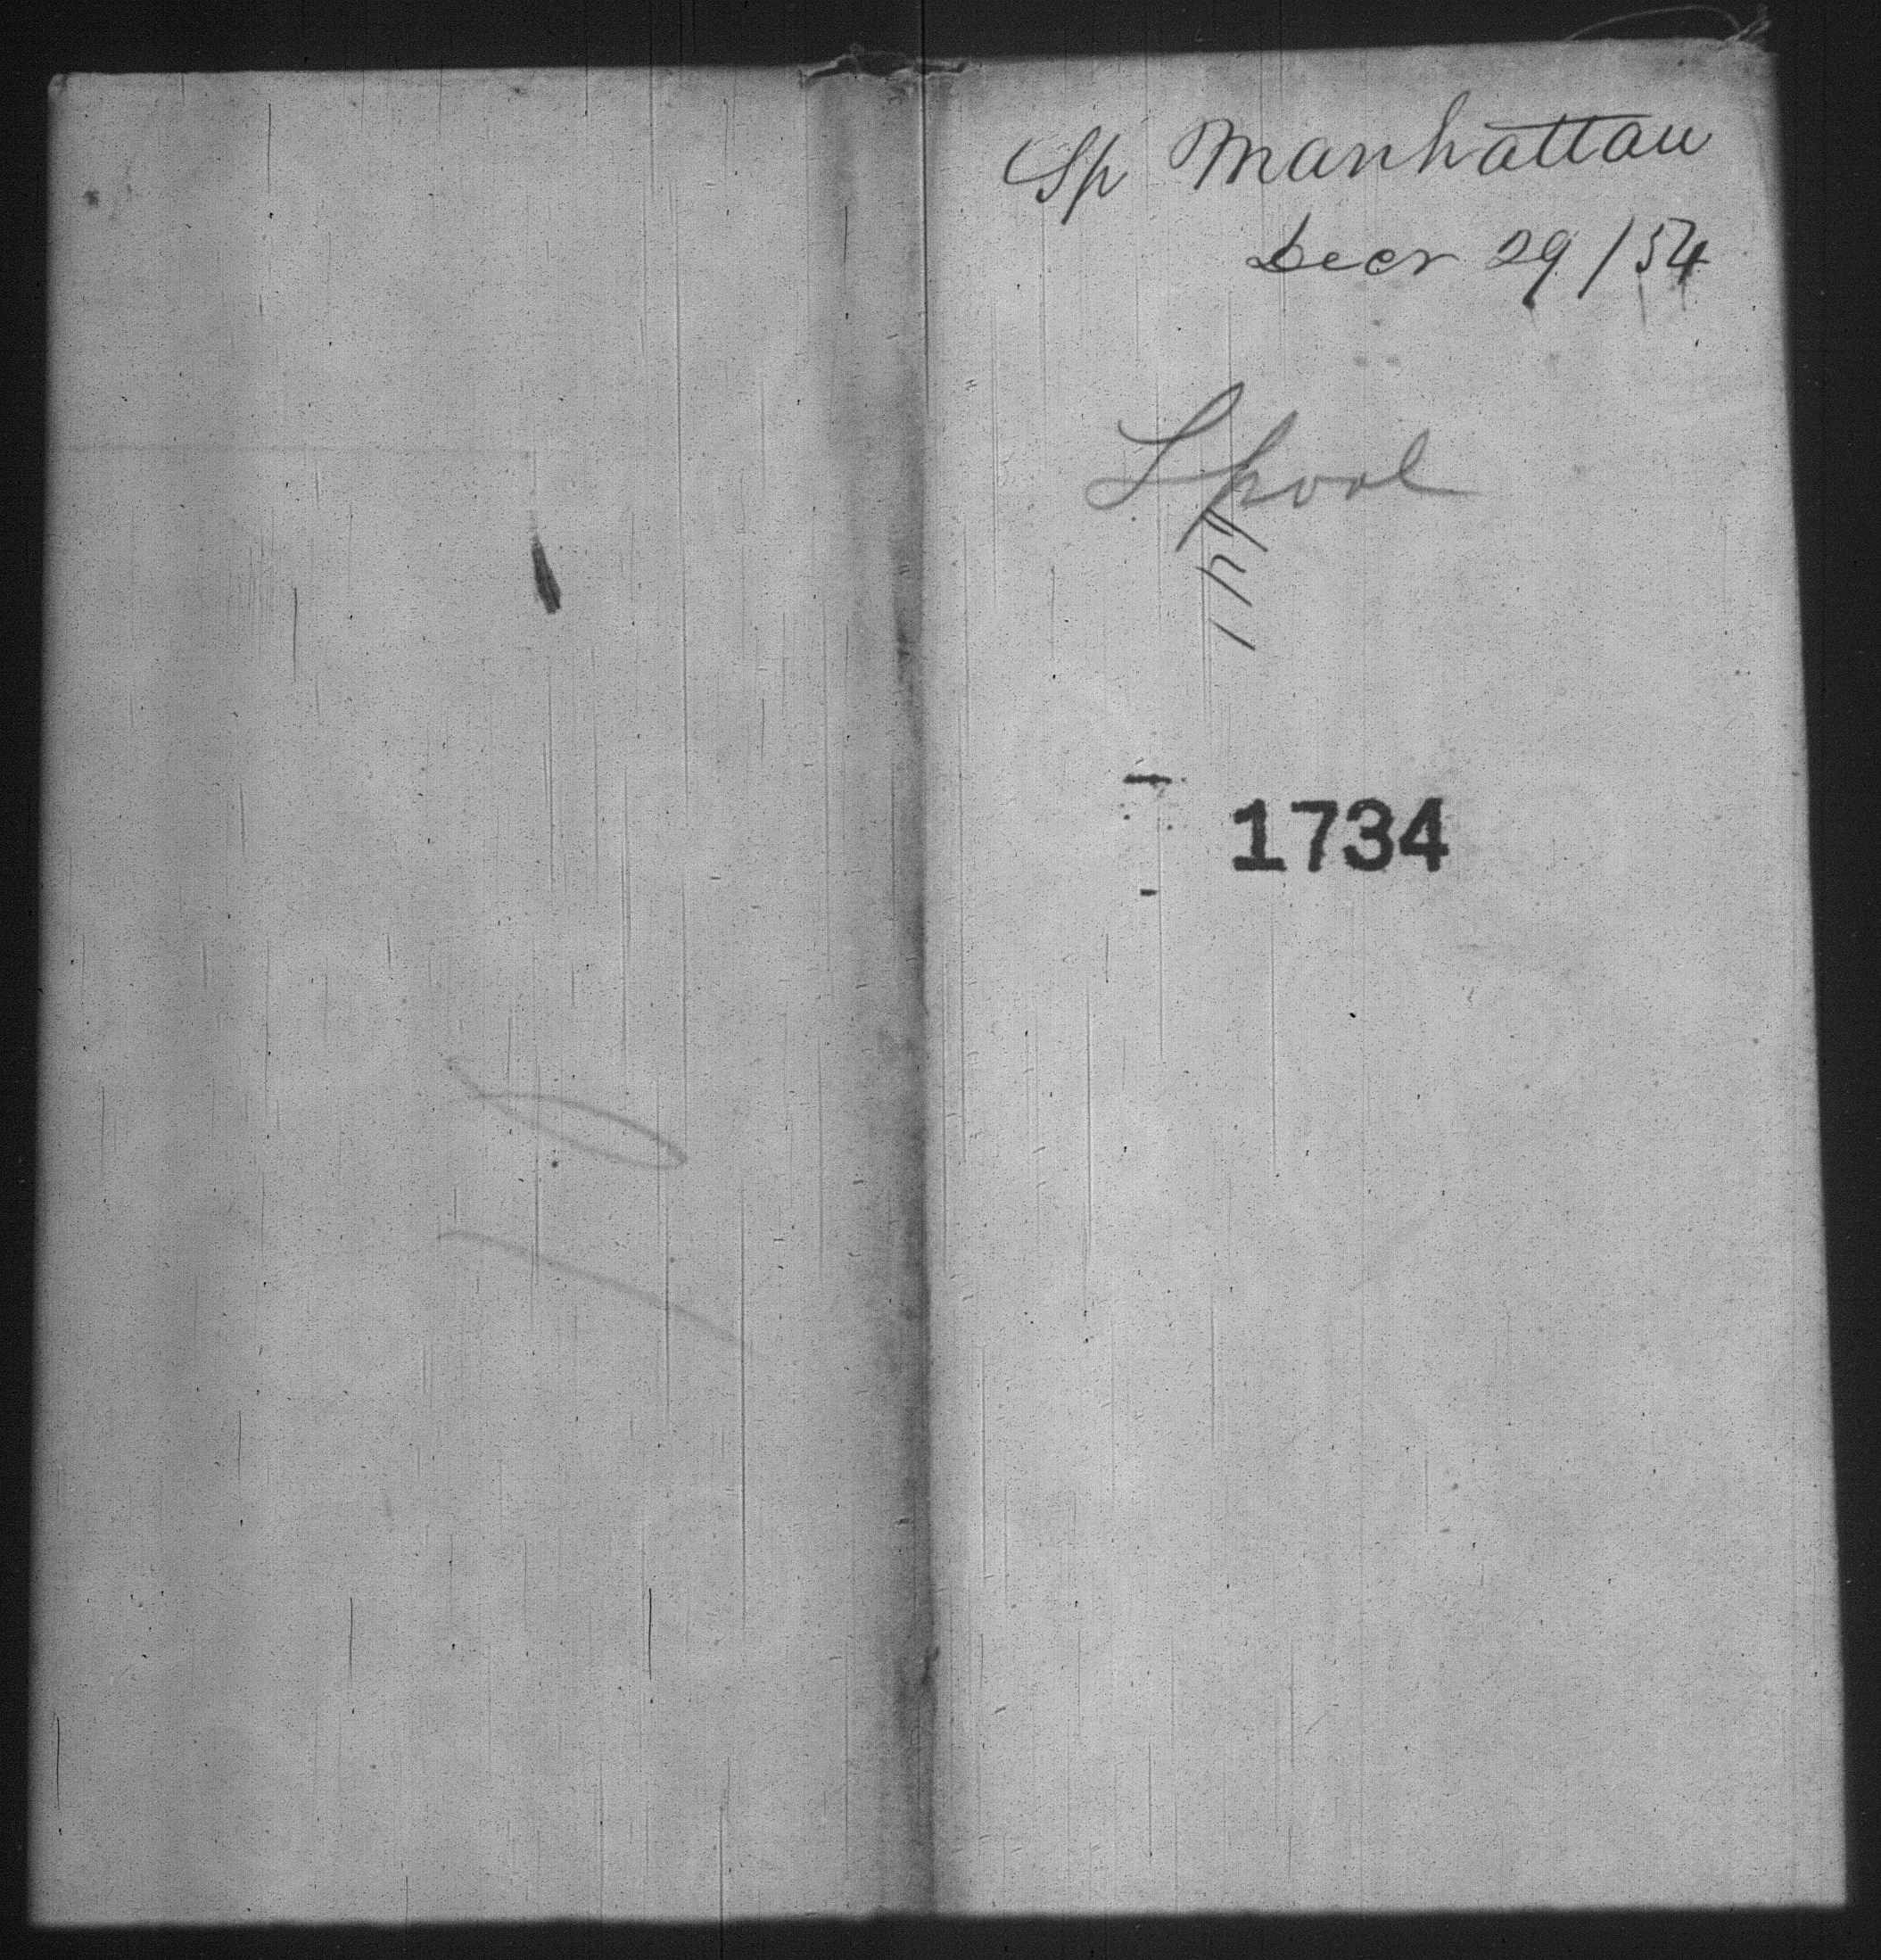 Sp Manhattan
Decr 29/54
Lpool
1734